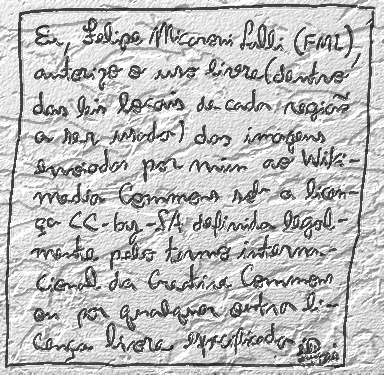 Eu, Felipe Micaroni Lalli (FML),
autorizo o uso livre (dentro
das leis locais de cada região
a ser usada) das imagens
enviadas por mim ao Wiki-
media Commons sob a licen-
ça CC-by-SA definida legal-
mente pelo termo interna-
cional da Creative Commons
ou por qualquer outra li-
cença livre especificada